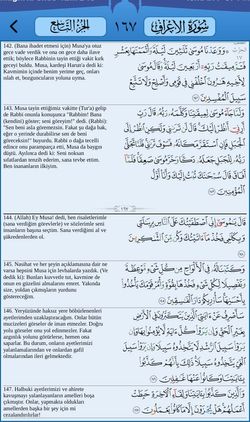 الجزء التاسع
١٦٧
سورة الأعراف
142. (Bana ibadet etmesi için) Musa'ya otuz
gece vade verdik ve ona on gece daha ilave
ettik; böylece Rabbinin tayin ettiği vakit kırk
geceyi buldu. Musa, kardeşi Harun'a dedi ki:
Kavmimin içinde benim yerime geç, onları
ıslah et, bozguncuların yoluna uyma.
وَوَاعَدْنَا مُوسَى ثَلَاثِينَ لَيْلَةً وَأَتْمَمْنَاهَا بِعَشْرٍ
فَتَمَّ مِيقَاتُ رَبِّهِ أَرْبَعِينَ لَيْلَةً وَقَالَ مُوسَى
لِأَخِيهِ هَارُونَ اخْلُفْنِي فِي قَوْمِي وَأَصْلِحْ وَلَا تَتَّبِعْ
سَبِيلَ الْمُفْسِدِينَ
143. Musa tayin ettiğimiz vakitte (Tur'a) gelip
de Rabbi onunla konuşunca "Rabbim! Bana
(kendini) göster; seni göreyim!" dedi. (Rabbi):
"Sen beni asla göremezsin. Fakat şu dağa bak,
eğer o yerinde durabilirse sen de beni
göreceksin!" buyurdu. Rabbi o dağa tecelli
edince onu paramparça etti, Musa da baygın
düştü. Ayılınca dedi ki: Seni noksan
sıfatlardan tenzih ederim, sana tevbe ettim.
Ben inananların ilkiyim.
وَلَمَّا جَاءَ مُوسَى لِمِيقَاتِنَا وَكَلَّمَهُ رَبُّهُ قَالَ رَبِّ
أَرِنِي أَنْظُرْ إِلَيْكَ قَالَ لَنْ تَرَانِي وَلَكِنِ انْظُرْ إِلَى
الْجَبَلِ فَإِنِ اسْتَقَرَّ مَكَانَهُ فَسَوْفَ تَرَانِي فَلَمَّا تَجَلَّى
رَبُّهُ لِلْجَبَلِ جَعَلَهُ دَكًّا وَخَرَّ مُوسَى صَعِقًا فَلَمَّا
أَفَاقَ قَالَ سُبْحَانَكَ تُبْتُ إِلَيْكَ وَأَنَا أَوَّلُ
الْمُؤْمِنِينَ
١٦٧
144. (Allah) Ey Musa! dedi, ben risaletlerimle
(sana verdiğim görevlerle) ve sözlerimle seni
insanların başına seçtim. Sana verdiğimi al ve
şükredenlerden ol.
قَالَ يَا مُوسَى إِنِّي اصْطَفَيْتُكَ عَلَى النَّاسِ بِرِسَالَاتِي
وَبِكَلَامِي فَخُذْ مَا آتَيْتُكَ وَكُنْ مِنَ الشَّاكِرِينَ
145. Nasihat ve her şeyin açıklamasına dair ne
varsa hepsini Musa için levhalarda yazdık. (Ve
dedik ki): Bunları kuvvetle tut, kavmine de
onun en güzelini almalarını emret. Yakında
size, yoldan çıkmışların yurdunu
göstereceğim.
وَكَتَبْنَا لَهُ فِي الْأَلْوَاحِ مِنْ كُلِّ شَيْءٍ مَوْعِظَةً
وَتَفْصِيلًا لِكُلِّ شَيْءٍ فَخُذْهَا بِقُوَّةٍ وَأْمُرْ قَوْمَكَ يَأْخُذُوا
بِأَحْسَنِهَا سَأُرِيكُمْ دَارَ الْفَاسِقِينَ
146. Yeryüzünde haksız yere böbürlenenleri
ayetlerimden uzaklaştıracağım. Onlar bütün
mucizeleri görseler de iman etmezler. Doğru
yolu görseler onu yol edinmezler. Fakat
azgınlık yolunu görürlerse, hemen ona
saparlar. Bu durum, onların ayetlerimizi
yalanlamalarından ve onlardan gafil
olmalarından ileri gelmektedir.
سَأَصْرِفُ عَنْ آيَاتِيَ الَّذِينَ يَتَكَبَّرُونَ فِي الْأَرْضِ
بِغَيْرِ الْحَقِّ وَإِنْ يَرَوْا كُلَّ آيَةٍ لَا يُؤْمِنُوا بِهَا وَإِنْ
يَرَوْا سَبِيلَ الرُّشْدِ لَا يَتَّخِذُوهُ سَبِيلًا وَإِنْ يَرَوْا سَبِيلَ
الْغَيِّ يَتَّخِذُوهُ سَبِيلًا ذَلِكَ بِأَنَّهُمْ كَذَّبُوا
بِآيَاتِنَا وَكَانُوا عَنْهَا غَافِلِينَ
147. Halbuki ayetlerimizi ve ahirete
kavuşmayı yalanlayanların amelleri boşa
çıkmıştır. Onlar, yapmakta oldukları
amellerden başka bir şey için mi
cezalandırılırlar!
وَالَّذِينَ كَذَّبُوا بِآيَاتِنَا وَلِقَاءِ الْآخِرَةِ حَبِطَتْ
أَعْمَالُهُمْ هَلْ يُجْزَوْنَ إِلَّا مَا كَانُوا يَعْمَلُونَ